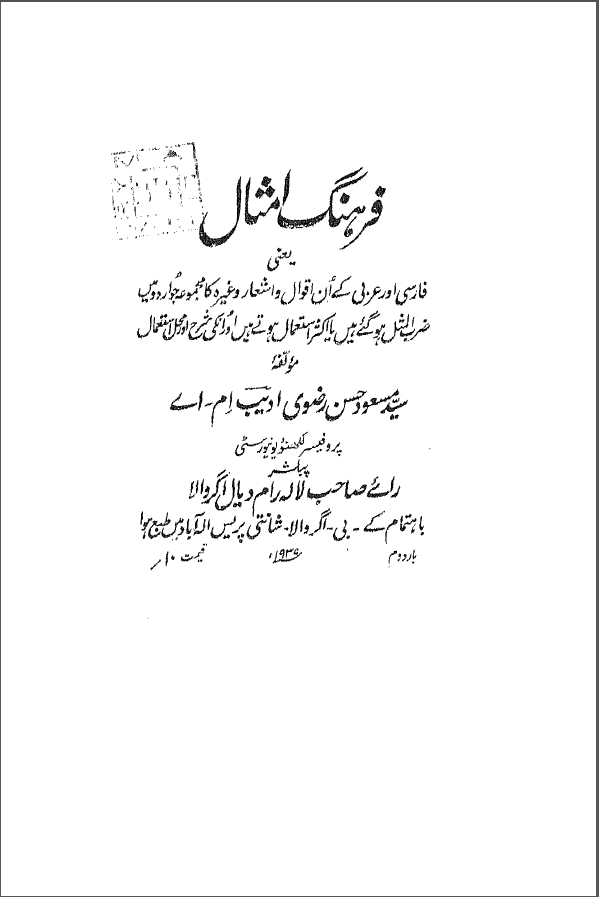 فرہنگ امثال
یعنی
فارسی اور عربی کے اُن اقوال و اشعار وغیرہ کا مجموعہ جو اردو میں
ضرب المثل ہو گئے ہیں یا اکثر استعمال ہوتے ہیں اور انکی شرح اور محل استعمال
مؤلفۂ
سید مسعود حسن رضوی ادیب ام - اے
پروفیسر لکھنؤ یونیورسٹی
پبلشر
رائے صاحب لالہ رام دیال اگروالا
باہتمام کے - بی - اگروالا - شانتی پریس الہ آباد میں طبع ہوا
بار دوم ۱۹۳۹ء قیمت ۱۰؍